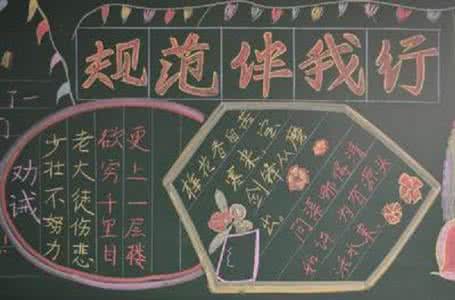 规范伴我行
劝诫
少壮不努力
老大徒伤悲
欲穷千里目
更上一层楼
梅花香自苦
寒来
宝剑锋从磨
问渠那得清
如许 为有源头
活水来